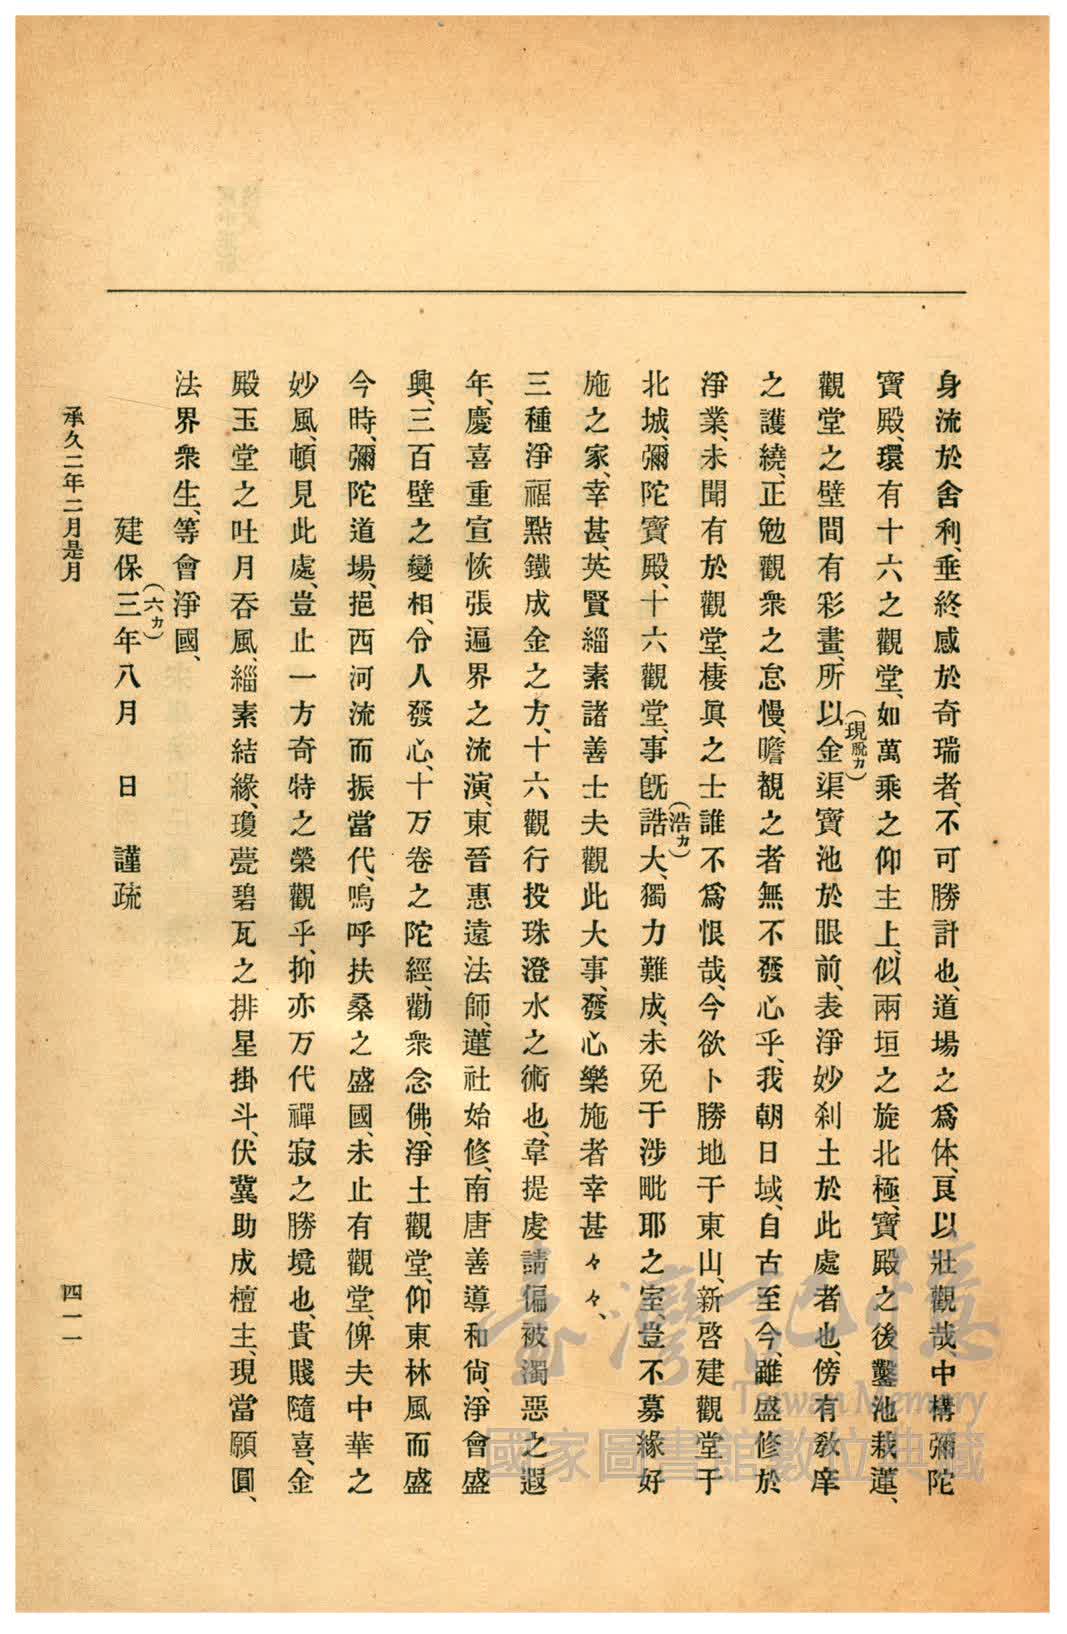 身流於舍利、垂終感於奇瑞者、不可勝計也、道場之爲体、良以壯觀哉、中構彌陀
寶殿、環有十六之觀堂、如萬乘之仰主上、似兩垣之旋北極、寶殿之後鑿池栽蓮、
觀堂之壁間有彩畫、所以金渠寶池於眼前、表淨妙刹土於此處者也、傍有教庠
(現脫カ)
之護繞、正勉觀衆之怠慢、瞻覩之者無不發心乎、我朝日域、自古至今、雖盛修於
淨業、未聞有於觀堂、棲眞之士誰不爲恨哉、今欲卜勝地于東山、新啓建觀堂于
北城、彌陀寶殿、十六觀堂、事旣誥大、獨力難成、未免于涉毗耶之室、豈不募緣好
(浩カ)
施之家、幸甚、英賢緇素諸善士夫觀此大事、發心樂施者幸甚々々、
三種淨福點鐵成金之方、十六觀行投珠澄水之術也、韋提處請偏被濁惡之遐
年、慶喜重宣恢張遍界之流演、東晉惠遠法師、蓮社始修、南唐善導和尙、淨會盛
興、三百壁之變相、令人發心、十万卷之陀經、勸衆念佛、淨土觀堂、仰東林風而盛
今時、彌陀道場、挹西河流而振當代、嗚呼扶桑之盛國、未止有觀堂、俾夫中華之
妙風、頓見此處、豈止一方奇特之榮觀乎、抑亦万代禪寂之勝境也、貴賤隨喜、金
殿玉堂之吐月吞風、緇素結緣、瓊甍碧瓦之排星掛斗、伏冀助成檀主、現當願圓、
法界衆生、等會淨國、
建保三年八月　日　謹疏
(六カ)
承久二年二月是月
四一一
臺灣記憶
Taiwan Memory
國家圖書館數位典藏